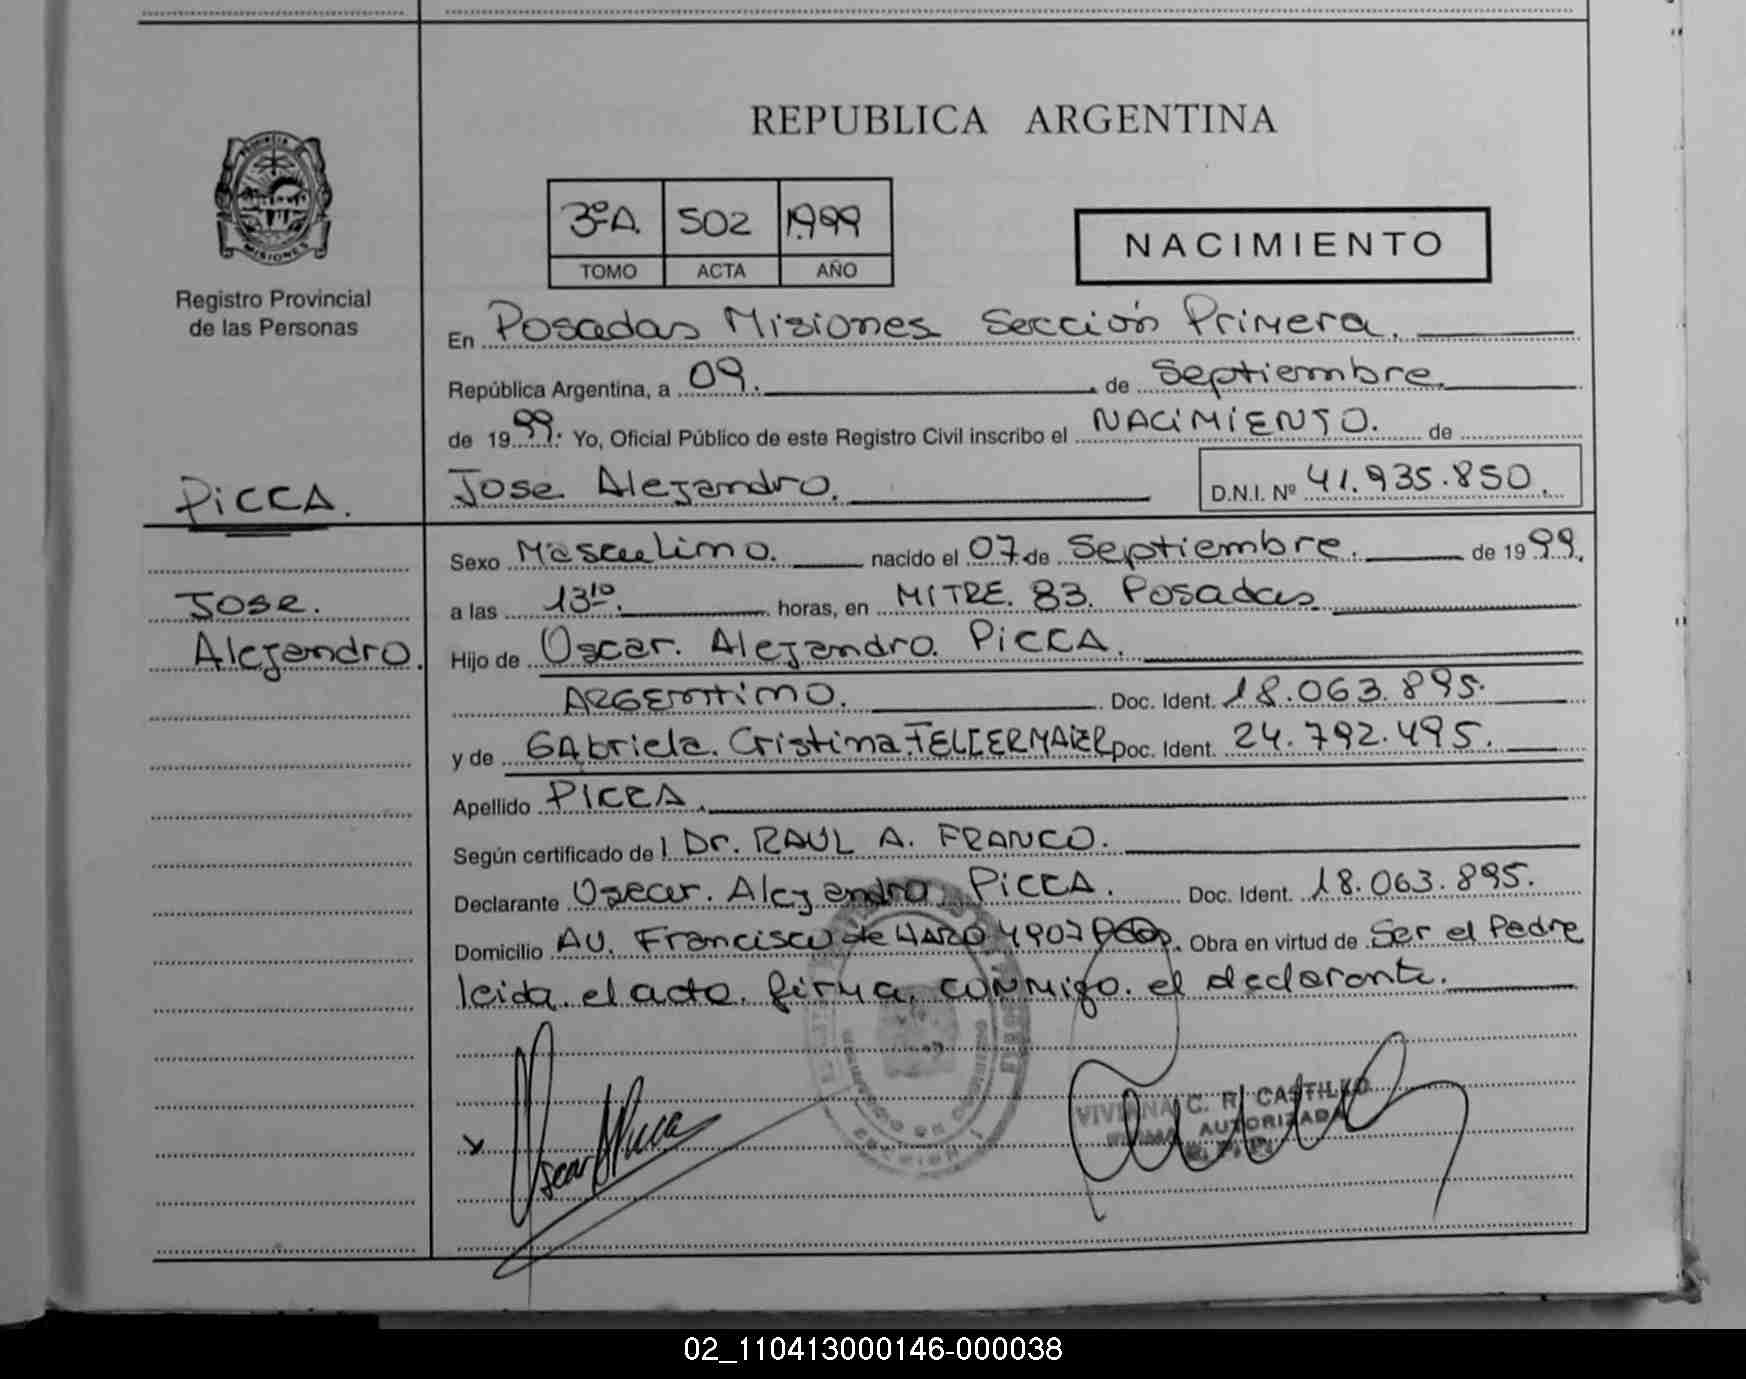 REPUBLICA ARGENTINA
3ºA. 502 1999
TOMO ACTA AÑO
NACIMIENTO
PROVINCIA DE
MISIONES
Registro Provincial
de las Personas
En Posadas Misiones Sección Primera.
República Argentina, a 09. de Septiembre.
de 1999. Yo, Oficial Público de este Registro Civil inscribo el NACIMIENTO. de
PICCA.
Jose Alejandro. D.N.I. Nº 41.935.850.
Sexo Masculino. nacido el 07 de Septiembre. de 1999.
Jose.
a las 13 10. horas, en MITRE. 83. Posadas
Alejandro.
Hijo de Oscar. Alejandro. PICCA.
ARGENTINO. Doc. Ident. 18.063.895.
y de GAbriela. Cristina Doc. Ident. 24.792.495.
Apellido PICCA.
Según certificado del Dr. RAUL A. FRANCO.
Declarante Oscar. Alejandro. PICCA. Doc. Ident. 18.063.895.
Domicilio AV. Francisco de HARO 4907 Obra en virtud de Ser el Padre
leida. el acta. firma. conmigo. el declarante.
Oscar A Picca
VIVIANA C. R. CASTILLO
FIRMA AUTORIZADA
02_110413000146-000038